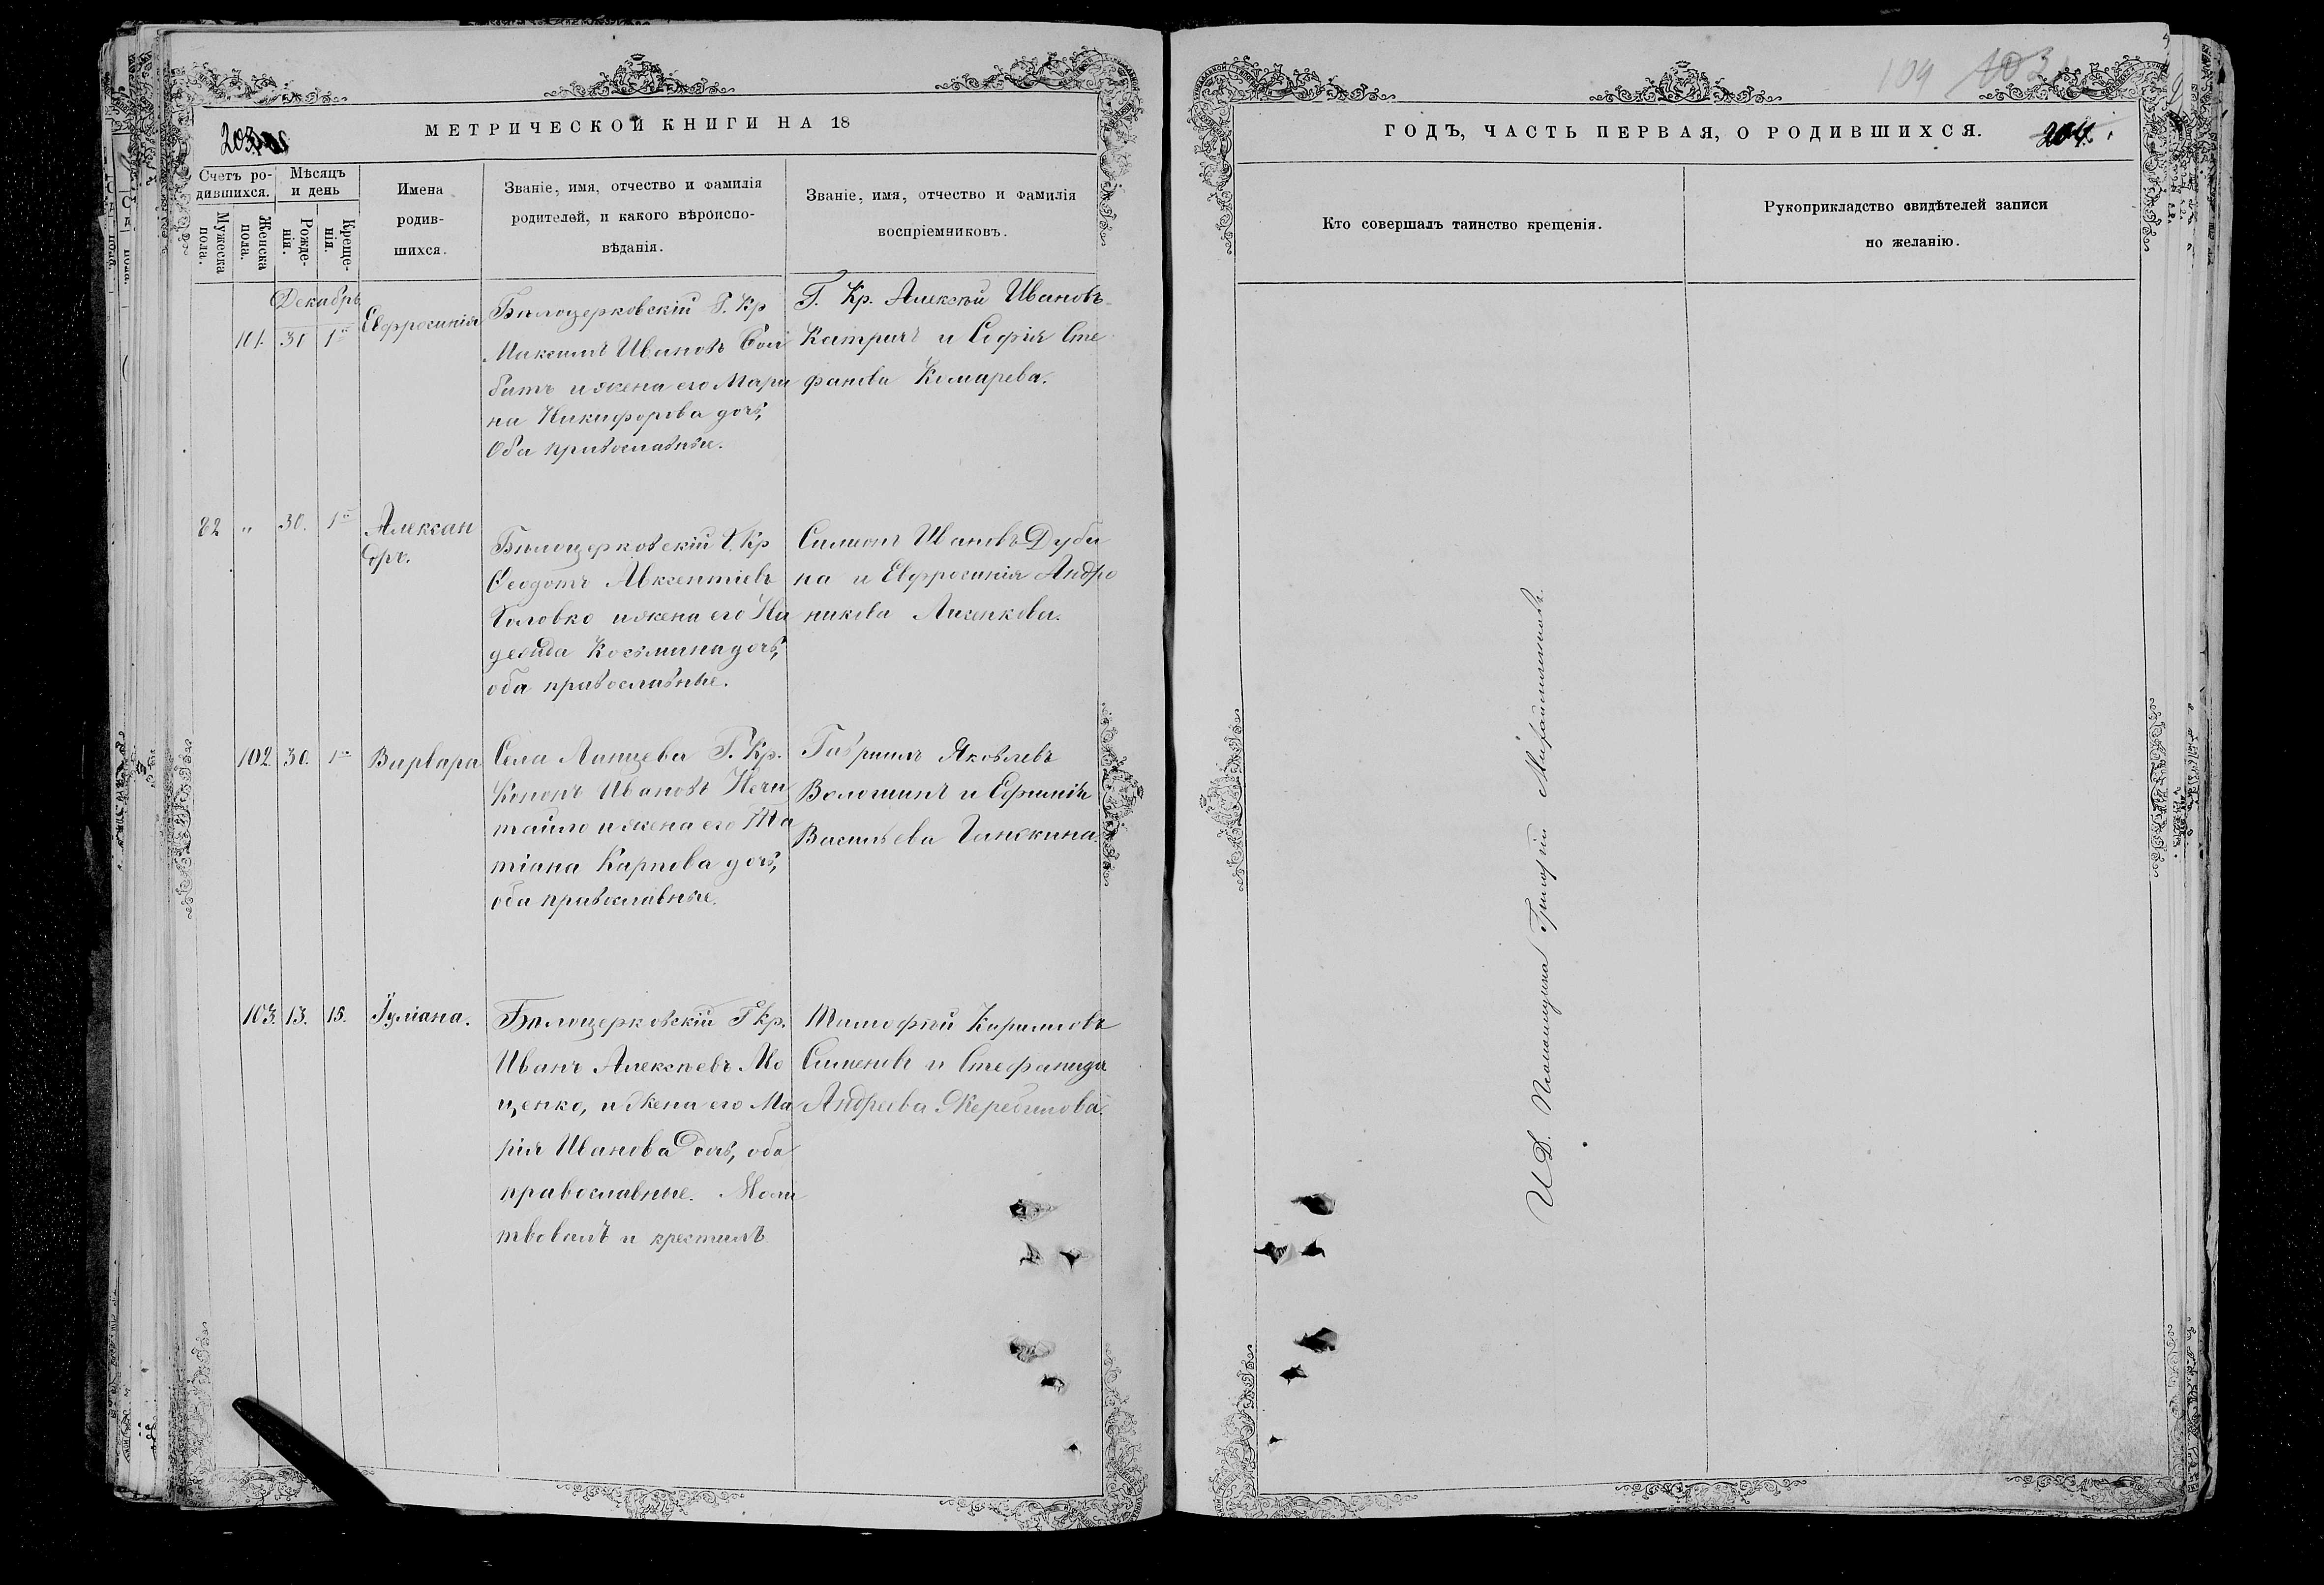 МЕТРИЧЕСКОЙ КНИГИ НА 18
203
Счетъ ро-
дившихся.
Мужеска
пола.
Женска
пола.
Мѣсяцъ
и день
Рожде-
нія.
Креще-
нія.
Имена
родив-
шихся.
Званіе, имя, отчество и фамилія
родителей, и какого вѣроиспо-
вѣданія.
Званіе, имя, отчество и фамилія
воспріемниковъ.
Декабрь
101. 31 1го
Евфросинія
Бѣлоцерковскій Г. Кр
Максимъ Ивановъ
битъ и жена его Мари
на Никифорова дочь,
Оба православные.
Г. Кр. Алексѣй Ивановъ
Катричъ и Софія Сте
фанова Комарева.
82 " 30. 1го
Алексан
дръ.
Бѣлоцерковскій Г. Кр
Феодотъ Авксентіевъ
Головко и жена его На
дежда Косьмина дочь,
оба православные.
Симеонъ Ивановъ Дуби
на и Евфросинія Андро
никова Лисенкова.
102. 30. 1го
Варвара
Села Липцева Г. Кр.
Кононъ Ивановъ Нечи
тайло и жена его Та
тіана Карпова дочь,
оба православные.
Гавріилъ Яковлевъ
Волошинъ и Ефимія
Васильева Ганжина.
103. 13. 15.
Іуліана.
Бѣлоцерковскій Г Кр.
Иванъ Алексѣевъ Мо
ценко, и жена его Ма
рія Иванова дочь, оба
православные. Моли
твовалъ и крестилъ
Тимофей Кириловъ
Сименовъ и Стефанида
Андреева Жеребилова.
109 103
ГОДЪ, ЧАСТЬ ПЕРВАЯ, О РОДИВШИХСЯ.
204
Кто совершалъ таинство крещенія.
Рукоприкладство свидѣтелей записи
по желанію.
И. Д. Псаломщика Григорій